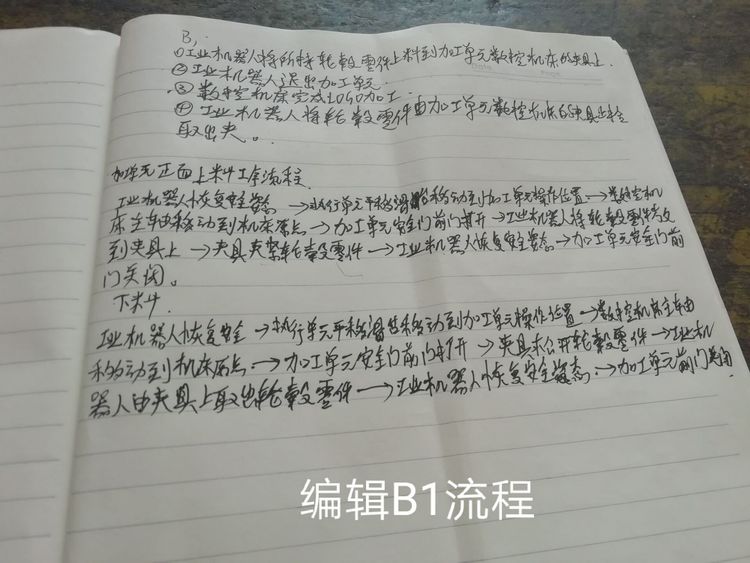 B,
①工业机器人将所持轮毂零件上料到加工单元数控机床的夹具上.
②工业机器人退出加工单元.
③数控机床完成加工.
④工业机器人将轮毂零件由加工单元数控机床的夹具
取出夹。
加单元正面上料工序流程.
工业机器人恢复安全姿态→执行单元平移滑台移动到加工单元操作位置→数控机
床主轴移动到机床原点→加工单元安全门前门打开→工业机器人将轮毂零件放
到夹具上→夹具夹紧轮毂零件→工业机器人恢复安全姿态→加工单元安全门前
门关闭。
下料.
工业机器人恢复安全→执行单元平移滑台移动到加工单元操作位置→数控机床主轴
移动到机床原点→加工单元安全门前门打开→夹具松开轮毂零件→工业机
器人由夹具上取出轮毂零件→工业机器人恢复安全姿态→加工单元前门关闭
编辑B1流程